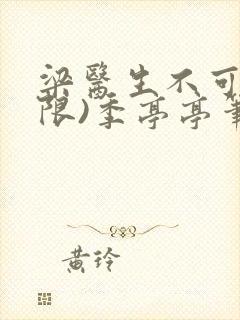 梁醫生不可
限)季亭亭筆
黃玲